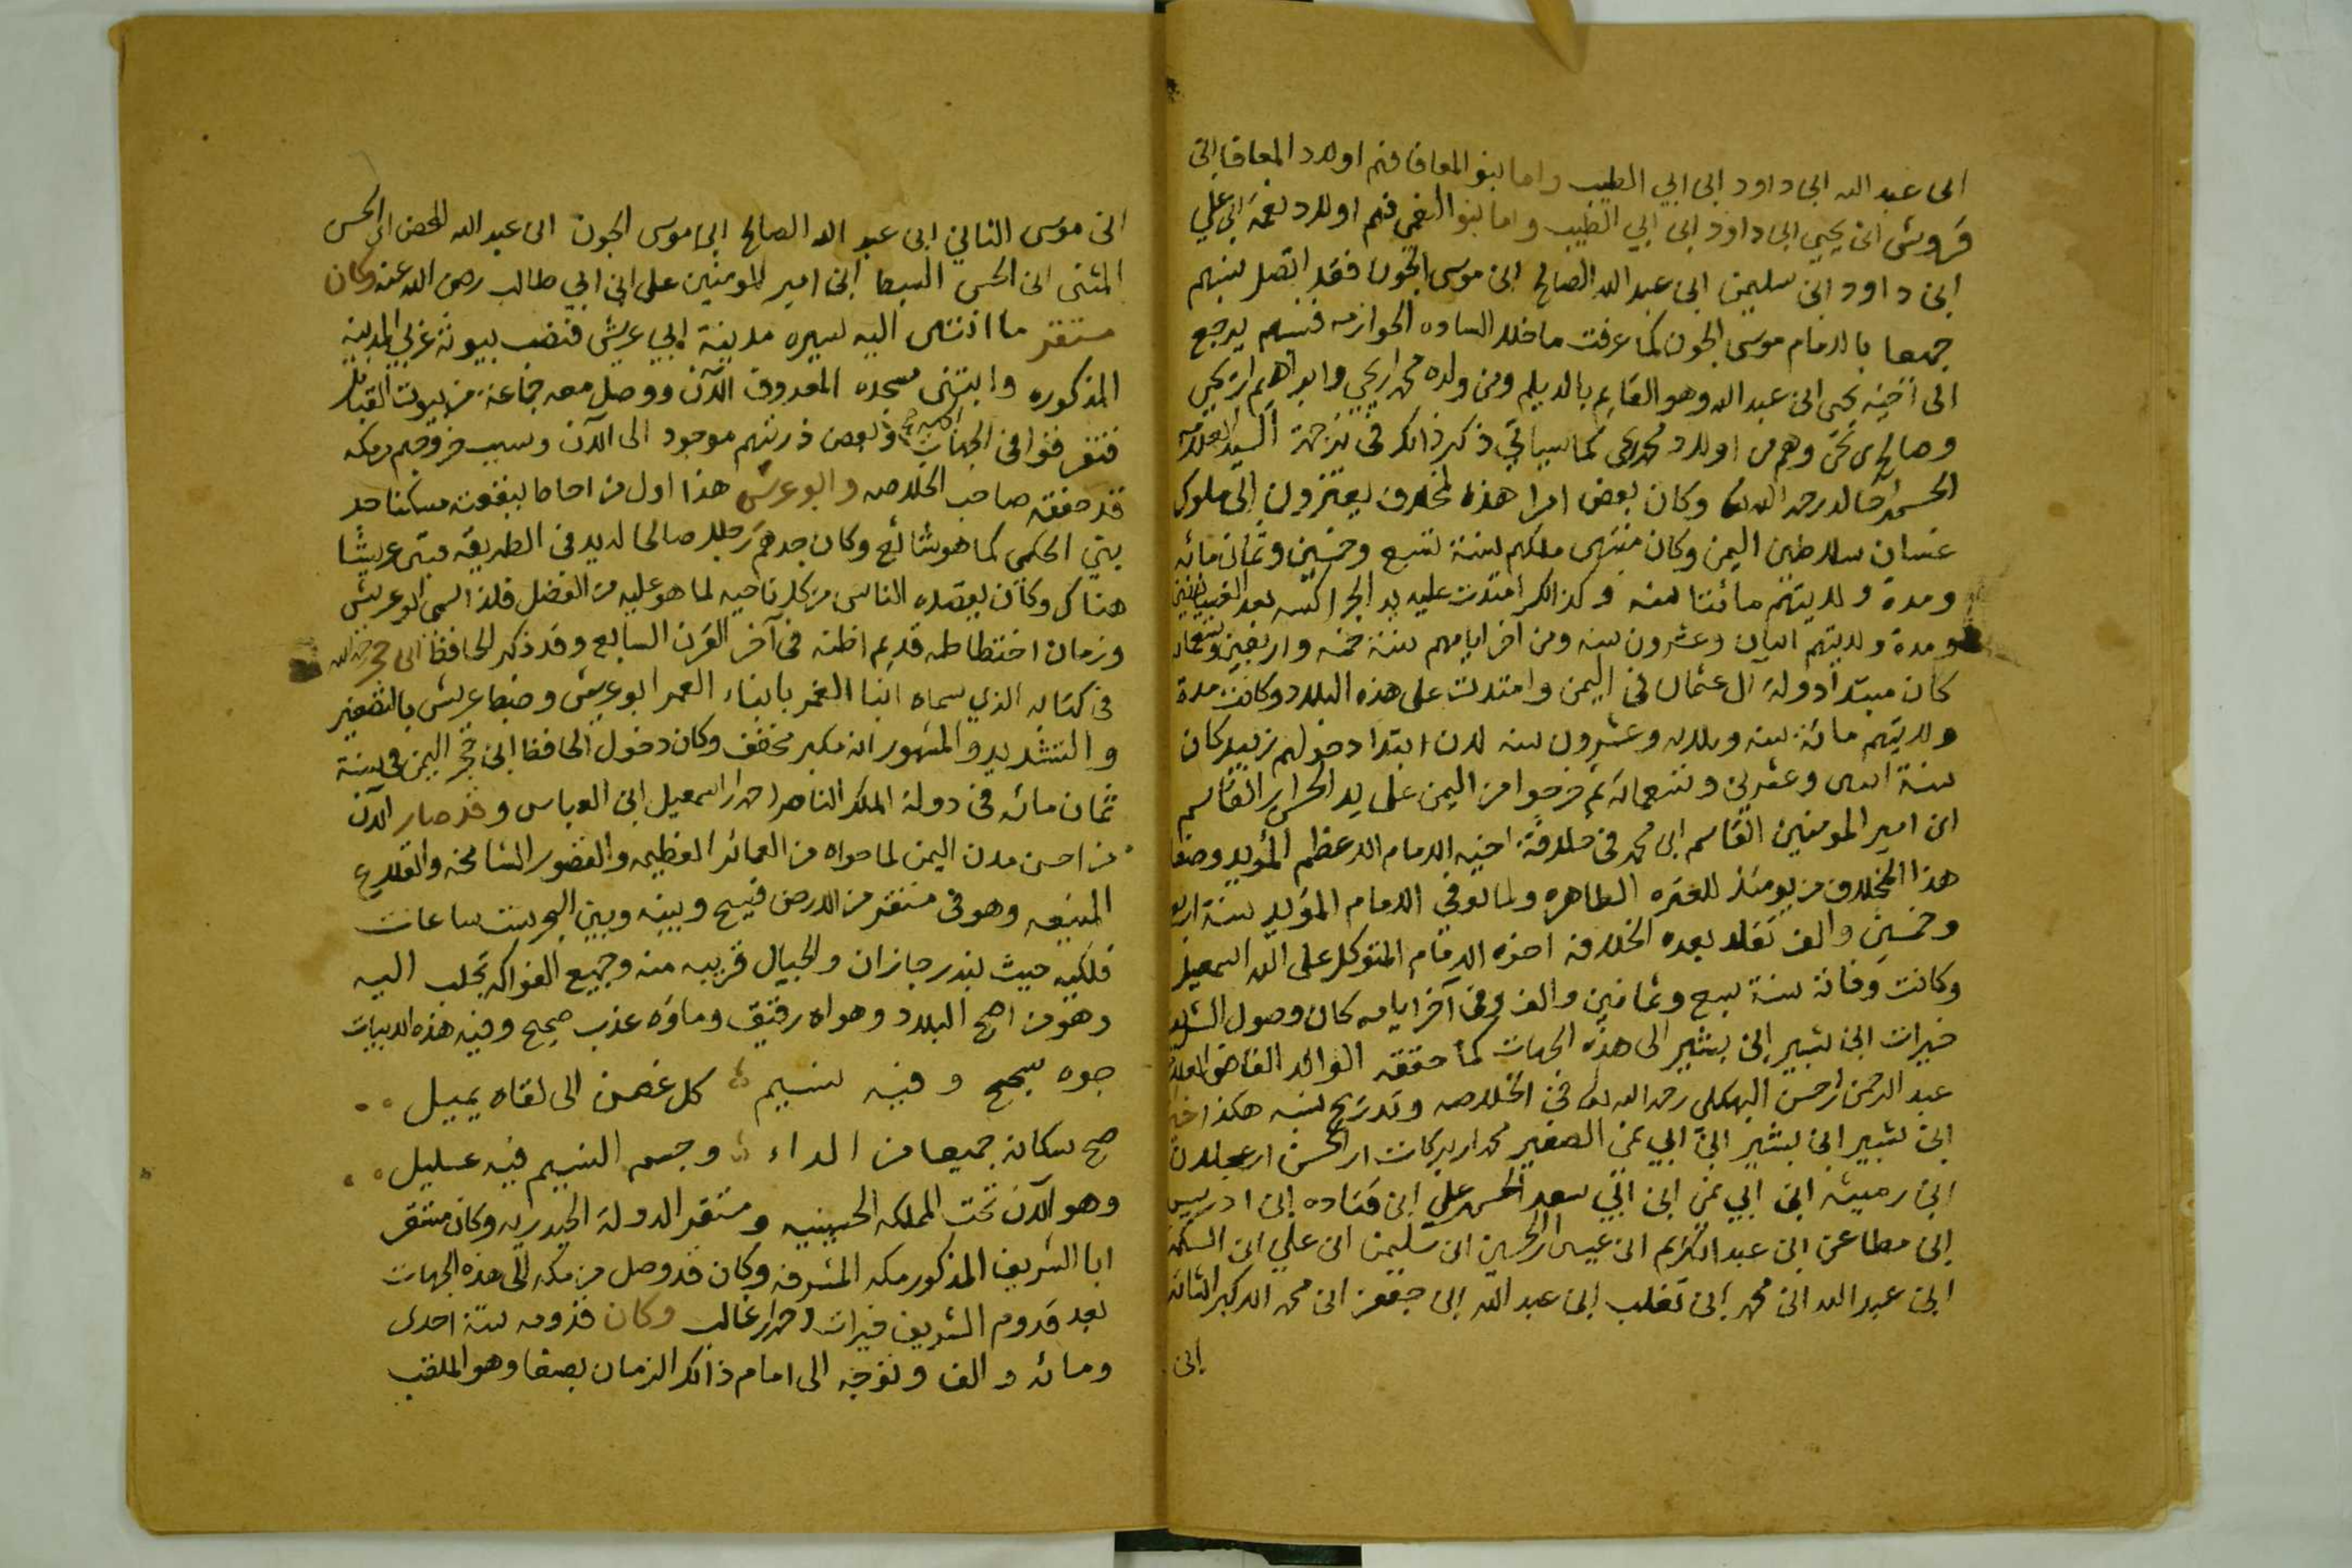 ابن عبد الله ابن داود ابن ابي الطيب واما بنو المعافا فهم اولاد المعافا ابن
ابن يحيى ابن داود ابن ابي الطيب واما بنو النعمى فهم اولاد نعمة ابن علي
ابن داود ابن سليمن ابن عبد الله الصالح ابن موسى الجون فقد اتصل نسبهم
جميعا بالامام موسى الجون كما عرفت ما خلا الساده الخوازمه فنسبهم يرجع
الى اخيه يحيى ابن عبد الله وهو القايم بالديلم ومن ولده محمد ابن يحيى وابراهيم ابن يحيى
وصالح ابن يحيى وهم من اولاد محمد ابن يحيى كما سياتي ذكر ذالك في ترجمة السيد العلامه
الحسن ابن خالد رحمه الله تعالى وكان بعض امرا هذه المخلاف يعتزون الى ملوك
غسان سلاطين اليمن وكان منتهى ملكهم سنة تسع وخمسين وثمان مائه
ومدة ولايتهم مائتا سنه وكذالك امتدت عليه يد الجراكسه بعد
ومدة ولايتهم اثنان وعشرون سنه ومن آخر ايامهم سنة خمسه واربعين وتسعمائه
كان مبتدا دولة آل عثمان في اليمن وامتدت على هذه البلاد وكانت مدة
ولايتهم مائة سنه وثلاثه وعشرون سنه لان ابتدا دخولهم زبيد كان
سنة اثنين وعشرين وتسعمائه ثم خرجوا من اليمن على يد الحسن ابن القاسم
ابن امير المومنين القاسم ابن محمد في خلافة اخيه الامام الاعظم المؤيد وصفا
هذا المخلاف من يومئذ للعتره الطاهره ولما توفي الامام المؤيد سنة اربع
وخمسين والف تقلد بعده الخلافه اخوه الامام المتوكل على الله اسمعيل
وكانت وفاته سنة سبع وثمانين والف وفي آخر ايامه كان وصول الشريف
خيرات ابن بشير ابن بشير الى هذه الجهات كما حققه الوالد القاضي العلامه
عبد الرحمن ابن حسن البهكلي رحمه الله تعالى في الخلاصه وتدريج نسبه هكذا خيرات
ابن بشير ابن بشير ابن ابي نمي الصغير محمد ابن بركات ابن الحسن ابن عجلان
ابن رميثه ابن ابي نمي ابن ابي سعد الحسن ابن علي ابن قتاده ابن ادريس
ابن مطاعن ابن عبد الكريم ابن عيسى ابن الحسين ابن سليمن ابن علي ابن
ابن عبد الله ابن محمد ابن تغلب ابن عبد الله ابن جعفر ابن محمد الاكبر الثائر
ابن
ابن موسى الثاني ابن عبد الله الصالح ابن موسى الجون ابن عبد الله المحض ابن الحسن
المثنى ابن الحسن السبط ابن امير المومنين على ابن ابي طالب رضى الله عنه وكان
مستقر ما انتهى اليه سيره مدينة ابي عريش فنصب بيوته غربي المدينه
المذكوره وابتنى مسجده المعروف الآن ووصل معه جماعة من بيوت القبائل
فتفرقوا في الجهات وبعض ذريتهم موجود الى الآن وسبب خروجهم من مكه
قد حققه صاحب الخلاصه وابو عريش هذا اول من احاط ببقعته مسكنا جد
بني الحكمى كما هو شائع وكان جدهم رجلا صالحا له يد في الطريقه فبنى عريشا
هناك وكان يقصده الناس من كل ناحيه لما هو عليه من الفضل فلذا سمى ابو عريش
وزمان اختطاطه قديم اظنه في آخر القرن السابع وقد ذكر الحافظ ابن حجر رحمه الله
في كتابه الذي سماه انبا الغمر بابناء العمر ابو عريش وضبط عريش بالتصغير
والتشديد والمشهور انه مكبر مخفف وكان دخول الحافظ ابن حجر اليمن في سنة
ثمان مائه في دولة الملك الناصر احمد ابن اسمعيل ابن العباس وقد صار الآن
من احسن مدن اليمن لما حواه من العمائر العظيمه والقصور الشامخه والقلاع
المنيعه وهو في مستقر من الارض فسيح وبينه وبين البحر ست ساعات
فلكيه حيث بندر جازان والجبال قريبه منه وجميع الفواكه تجلب اليه
وهو من اصح البلاد وهواه رقيق وماؤه عذب صحيح وفيه هذه الابيات
جوه سجسج وفيه نسيم كل غصن الى لقاه يميل
صح سكانه جميعا من الداء وجسم النسيم فيه عليل
وهو الآن تخت المملكه الحسينيه ومستقر الدولة الحيدريه وكان مستقر
ابا الشريف المذكور مكه المشرفه وكان قد وصل من مكه الى هذه الجهات
بعد قدوم الشريف خيرات احمد ابن غالب وكان قدومه سنة احدى
ومائه والف وتوجه الى امام ذالك الزمان بصنعا وهو الملقب